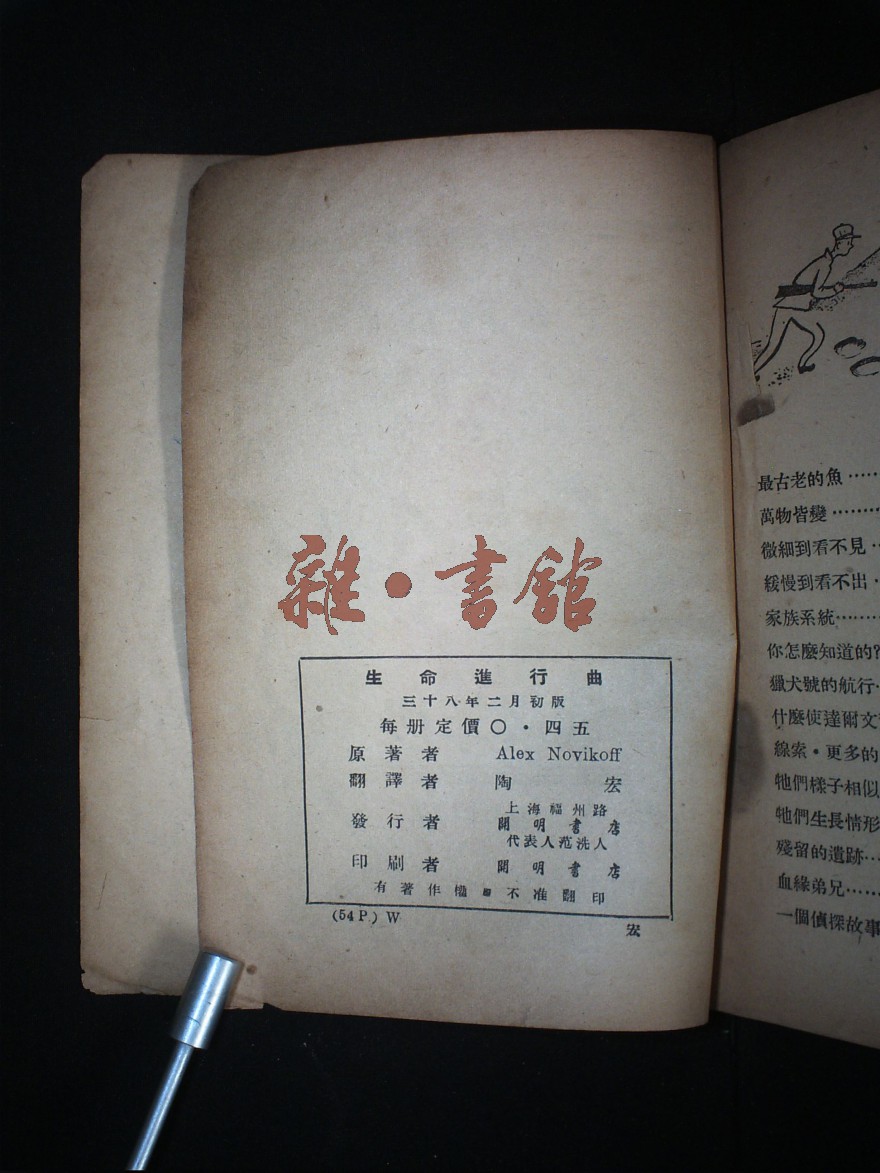 雜·書舘
生命進行曲
三十八年二月初版
每册定價〇·四五
原著者 Alex Novikoff
翻譯者 陶宏
發行者 上海福州路
開明書店
代表人范洗人
印刷者 開明書店
有著作權 不准翻印
(54P.) W
宏
最古老的魚……
萬物皆變……
微細到看不見…
緩慢到看不出…
家族系統……
你怎麼知道的?
獵犬號的航行…
什麼使達爾文
線索·更多的
牠們樣子相似
牠們生長情形
殘留的遺跡……
血緣弟兄……
一個偵探故事